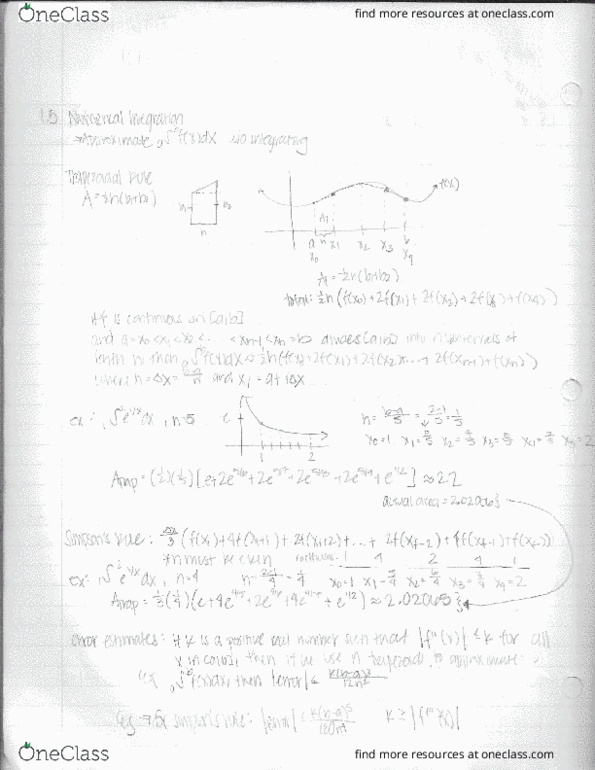 OneClass
find more resources at oneclass.com
1.5 Numerical Integration
→ Approximate ₐ∫ᵇf(x)dx w/o integrating
Trapezoidal Rule
A = ½h(b₁+b₂)
b₁ b₂
h
f(x)
A₁
a h x₁ x₂ x₃ b
x₀ x₄
A₁ = ½h(b₁+b₂)
total: ½h (f(x₀)+2f(x₁)+2f(x₂)+2f(x₃)+f(x₄))
If f is continuous on [a,b]
and a=x₀<x₁<x₂<... <xₙ₋₁<xₙ=b divides [a,b] into n subintervals of
length h, then ₐ∫ᵇf(x)dx ≈ ½h(f(x₀)+2f(x₁)+2f(x₂)...+2f(xₙ₋₁)+f(xₙ))
where h=Δx= b-a/n and
ex: ₁∫²e^(1/x)dx, n=5
e
1 2
h = b-a/5 = 2-1/5 = 1/5
x₀=1 x₁=6/5 x₂=7/5 x₃=8/5 x₄=9/5 x₅=2
Atrap = (½)(⅕)[e+2e^(5/6)+2e^(5/7)+2e^(5/8)+2e^(5/9)+e^(1/2)] ≈
actual area =
Simpson's Rule:
*n must be even 1 4 2 4 1
ex: ₁∫²e^(1/x)dx, n=4 h = 2-1/4 = 1/4 x₀=1 x₄=2
≈ 2.02065
error estimates: if k is a positive real number such that |f''(x)| ≤ k for all
x in [a,b], then if we use n trapezoids to approximate
ₐ∫ᵇf(x)dx, then |error| ≤ k(b-a)³/12n²
Simpson's rule: |error| ≤ k(b-a)⁵/180n⁴
OneClass
find more resources at oneclass.com